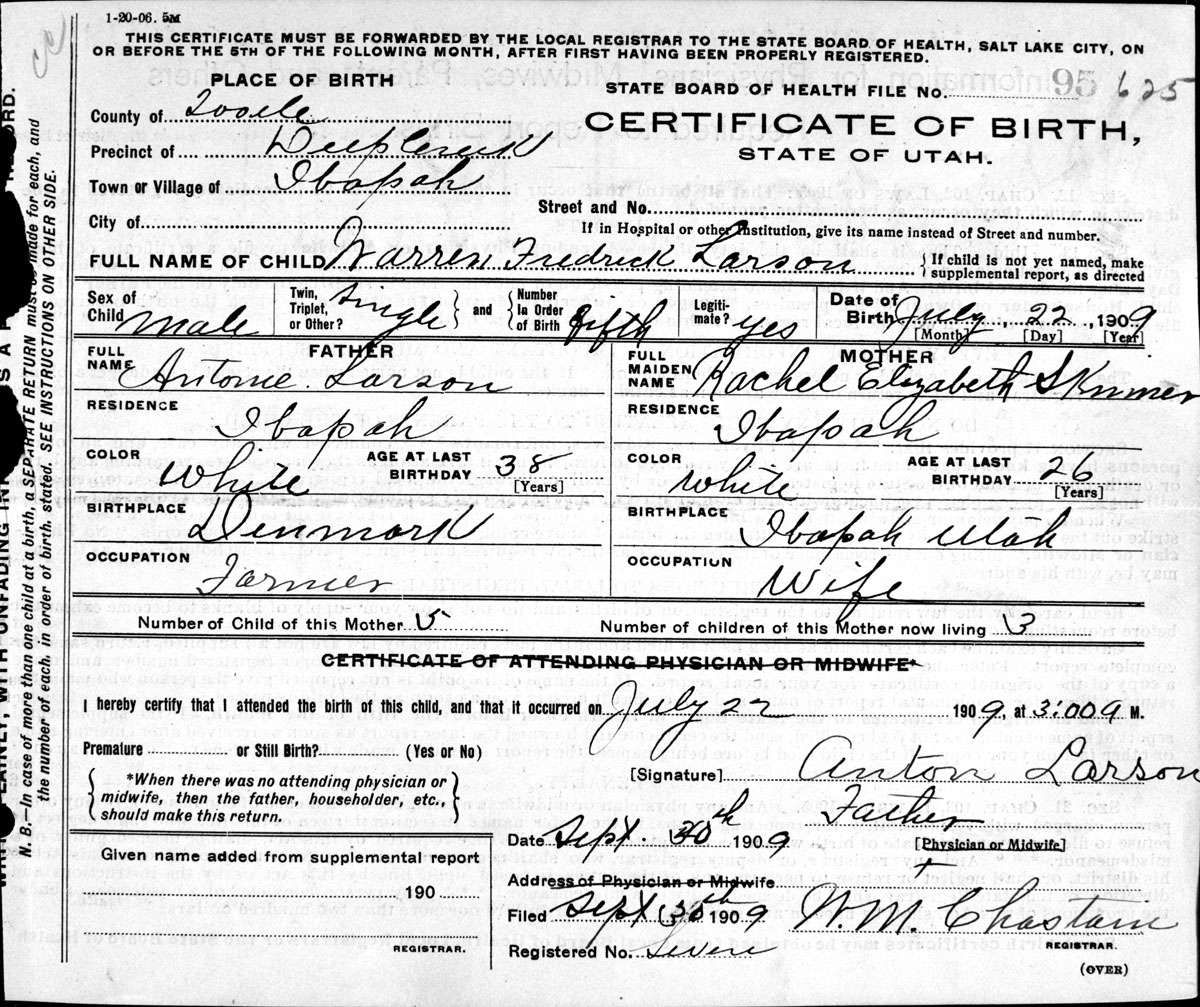 1-20-06. 5M
THIS CERTIFICATE MUST BE FORWARDED BY THE LOCAL REGISTRAR TO THE STATE BOARD OF HEALTH, SALT LAKE CITY, ON
OR BEFORE THE 5TH OF THE FOLLOWING MONTH, AFTER FIRST HAVING BEEN PROPERLY REGISTERED.
PLACE OF BIRTH
STATE BOARD OF HEALTH FILE No. 95 625
County of Tooele
CERTIFICATE OF BIRTH,
STATE OF UTAH.
Precinct of Deep Creek
Town or Village of Ibapah
Street and No.
City of
If in Hospital or other Institution, give its name instead of Street and number.
FULL NAME OF CHILD Warren Fredrick Larson { If child is not yet named, make supplemental report, as directed
Sex of Child Male
Twin, Triplet, or Other? Single } and { Number In Order of Birth fifth
Legiti-mate? yes
Date of Birth July, 22, 1909
[Month] [Day] [Year]
FATHER
FULL NAME Antone Larson
RESIDENCE Ibapah
COLOR White
AGE AT LAST BIRTHDAY 38 [Years]
BIRTHPLACE Denmark
OCCUPATION Farmer
MOTHER
FULL MAIDEN NAME Rachel Elizabeth Skinner
RESIDENCE Ibapah
COLOR White
AGE AT LAST BIRTHDAY 26 [Years]
BIRTHPLACE Ibapah Utah
OCCUPATION Wife
Number of Child of this Mother 5
Number of children of this Mother now living 3
CERTIFICATE OF ATTENDING PHYSICIAN OR MIDWIFE*
I hereby certify that I attended the birth of this child, and that it occurred on July 22 1909, at 3:00 M.
Premature or Still Birth? (Yes or No)
{ *When there was no attending physician or midwife, then the father, householder, etc., should make this return. }
[Signature] Anton Larson
Father
Date Sept 30th 1909
[Physician or Midwife]
Given name added from supplemental report
190
REGISTRAR.
Address of Physician or Midwife
Filed Sept 30th 1909 W. M. Chastain
REGISTRAR.
Registered No. Seven
(OVER)
N. B.—In case of more than one child at a birth, a SEPARATE RETURN must be made for each, and
the number of each, in order of birth, stated. SEE INSTRUCTIONS ON OTHER SIDE.